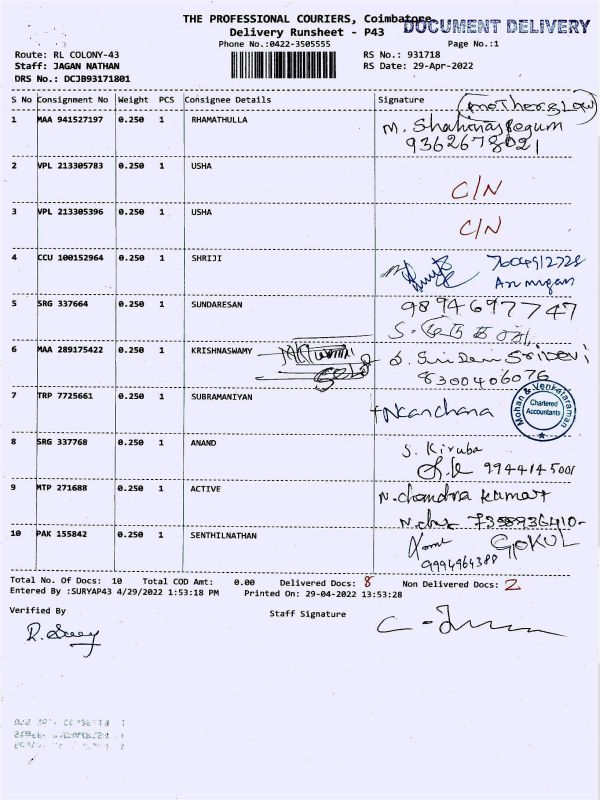 THE PROFESSIONAL COURIERS, Coimbatore
DOCUMENT DELIVERY
Delivery Runsheet - P43
Phone No.:0422-3505555
Page No.:1
Route: RL COLONY-43
RS No.: 931718
Staff: JAGAN NATHAN
RS Date: 29-Apr-2022
DRS No.: DCJB93171801
S No Consignment No Weight PCS Consignee Details Signature
1 MAA 941527197 0.250 1 RHAMATHULLA
M. Shahinas Begum
2 VPL 213305783 0.250 1 USHA
C/N
3 VPL 213305396 0.250 1 USHA
C/N
4 CCU 100152964 0.250 1 SHRIJI
5 SRG 337664 0.250 1 SUNDARESAN
9894697747
6 MAA 289175422 0.250 1 KRISHNASWAMY
SriDevi
8300406076
7 TRP 7725661 0.250 1 SUBRAMANIYAN
Kanchana
Mohan & Venkataraman
Chartered
Accountants
8 SRG 337768 0.250 1 ANAND
S. Kiruba
9944145001
9 MTP 271688 0.250 1 ACTIVE
N. chandra kumar
10 PAK 155842 0.250 1 SENTHILNATHAN
GOKUL
9994964388
Total No. Of Docs: 10 Total COD Amt: 0.00 Delivered Docs: 8 Non Delivered Docs: 2
Entered By :SURYAP43 4/29/2022 1:53:18 PM Printed On: 29-04-2022 13:53:28
Verified By
Staff Signature